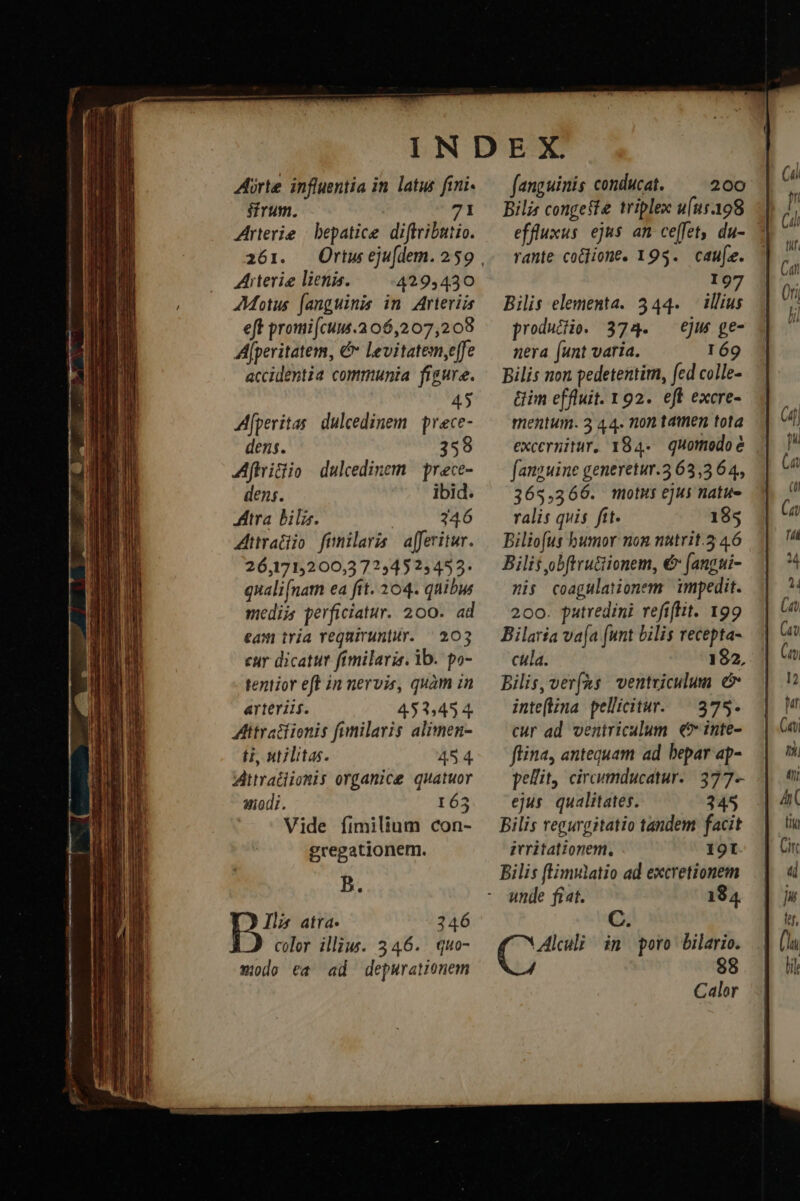 INDEX.
Aörtæ influentia in latus sini-
strum. 71
Arteriæ hepaticæ distributio.
261. Ortus ejusdem. 259.
Arteriæ lienis. 429,430
Motus sanguinis in Arteriis
est promiscuus. 206,207,208
Asperitatem, & levitatem, esse
accidentia communia figuræ.
45
Asperitas dulcedinem præce-
dens. 358
Astrictio dulcedinem præce-
dens. ibid.
Atra bilis. 346
Attractio similaris asseritur.
26,171,200,372,452,453.
qualisnam ea sit. 204. quibus
mediis perficiatur. 200. ad
eam tria requiruntur. 203
cur dicatur similaris. ib. po-
tentior est in nervis, quàm in
arteriis. 453,454
Attractionis similaris alimen-
ti, utilitas. 454
Attractionis organicæ quatuor
modi. 163
Vide similium con-
gregationem.
B.
BIlis atra. 346
color illius. 346. quo-
modo ea ad depurationem
sanguinis conducat. 200
Bilis congestæ triplex usus. 198
effluxus ejus an cesset, du-
rante coctione. 195. causæ.
197
Bilis elementa. 344. illius
productio. 374. ejus ge-
nera sunt varia. 169
Bilis non pedetentim, sed colle-
ctim effluit. 192. est excre-
mentum. 344. non tamen tota
excernitur. 184. quomodo è
sanguine generetur. 363,364,
365,366. motus ejus natu-
ralis quis sit. 185
Biliosus humor non nutrit. 346
Bilis, obstructionem, & sangui-
nis coagulationem impedit.
200. putredini resistit. 199
Bilaria vasa sunt bilis recepta-
cula. 182,
Bilis, versùs ventriculum &
intestina pellicitur. 375.
cur ad ventriculum & inte-
stina, antequam ad hepar ap-
pellit, circumducatur. 377.
ejus qualitates. 345
Bilis regurgitatio tandem facit
irritationem. 191
Bilis stimulatio ad excretionem
unde fiat. 184
C.
CAlculi in poro bilario.
88
Calor